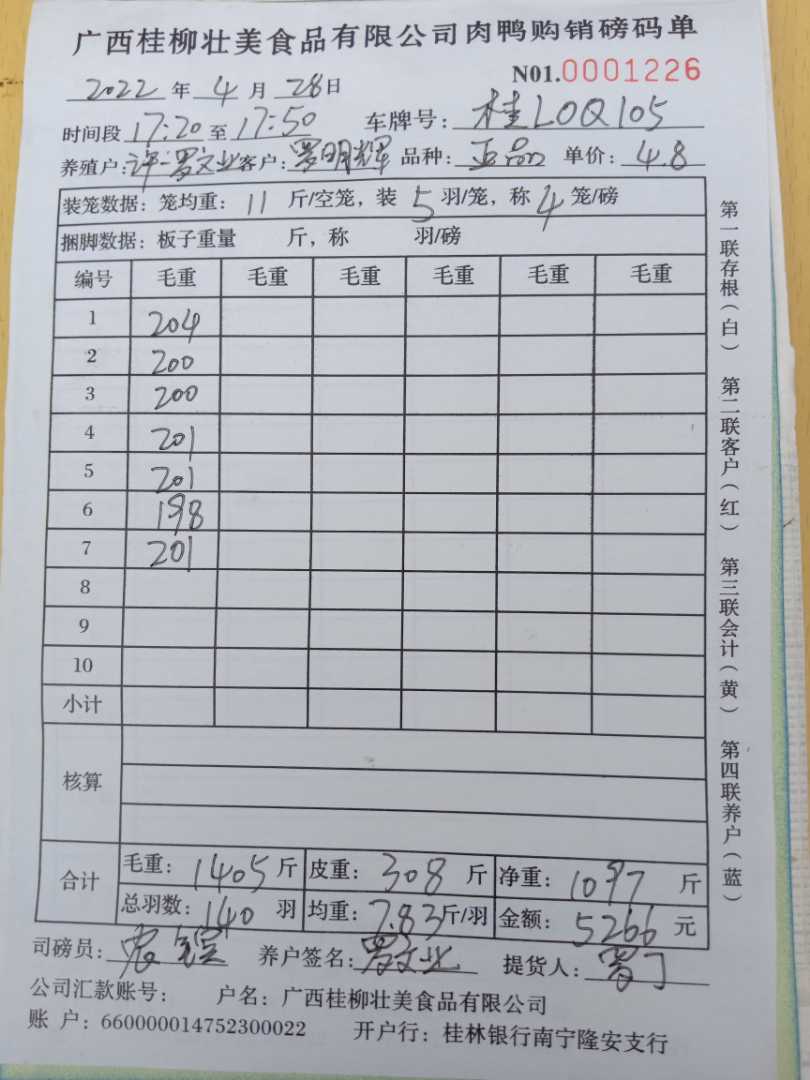 广西桂柳壮美食品有限公司肉鸭购销磅码单
N01.0001226
2022年4月28日
时间段17:20至17:50 车牌号:桂L0Q105
养殖户:许-罗文业客户:罗明辉 品种:正品 单价:4.8
装笼数据:笼均重:11斤/空笼,装5羽/笼,称4笼/磅
捆脚数据:板子重量 斤,称 羽/磅
编号 毛重 毛重 毛重 毛重 毛重 毛重
1 204
2 200
3 200
4 201
5 201
6 198
7 201
8
9
10
小计
核算
合计
毛重:1405斤 皮重:308斤 净重:1097斤
总羽数:140羽 均重:7.83斤/羽 金额:5266元
司磅员: 养户签名:罗文业 提货人:
公司汇款账号: 户名:广西桂柳壮美食品有限公司
账 户:660000014752300022 开户行:桂林银行南宁隆安支行
第一联存根(白) 第二联客户(红) 第三联会计(黄) 第四联养户(蓝)